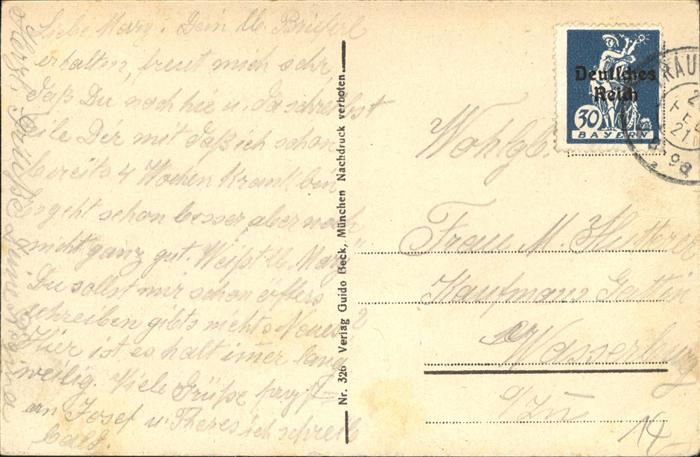 Liebe Mary! Dein lb. Brieferl
erhalten, freut mich sehr
daß Du noch hie u. da schreibst
teile Dir mit daß ich schon
bereits 4 Wochen krank bin
geht schon besser aber noch
nicht ganz gut. Weißt lb. Mary
Du sollst mir schon öfters
schreiben gibts nichts Neues?
Hier ist es halt immer lang
weilig. Viele Grüße
an Josef u. Theres ich schreib
bald.
Herzl. Grüße
Nr. 326 Verlag Guido Beck, München Nachdruck verboten.
Deutsches
Reich
30
BAYERN
Wohlgb.
Frau M.
Kaufmans Gattin
Wasserburg
a/Inn
14